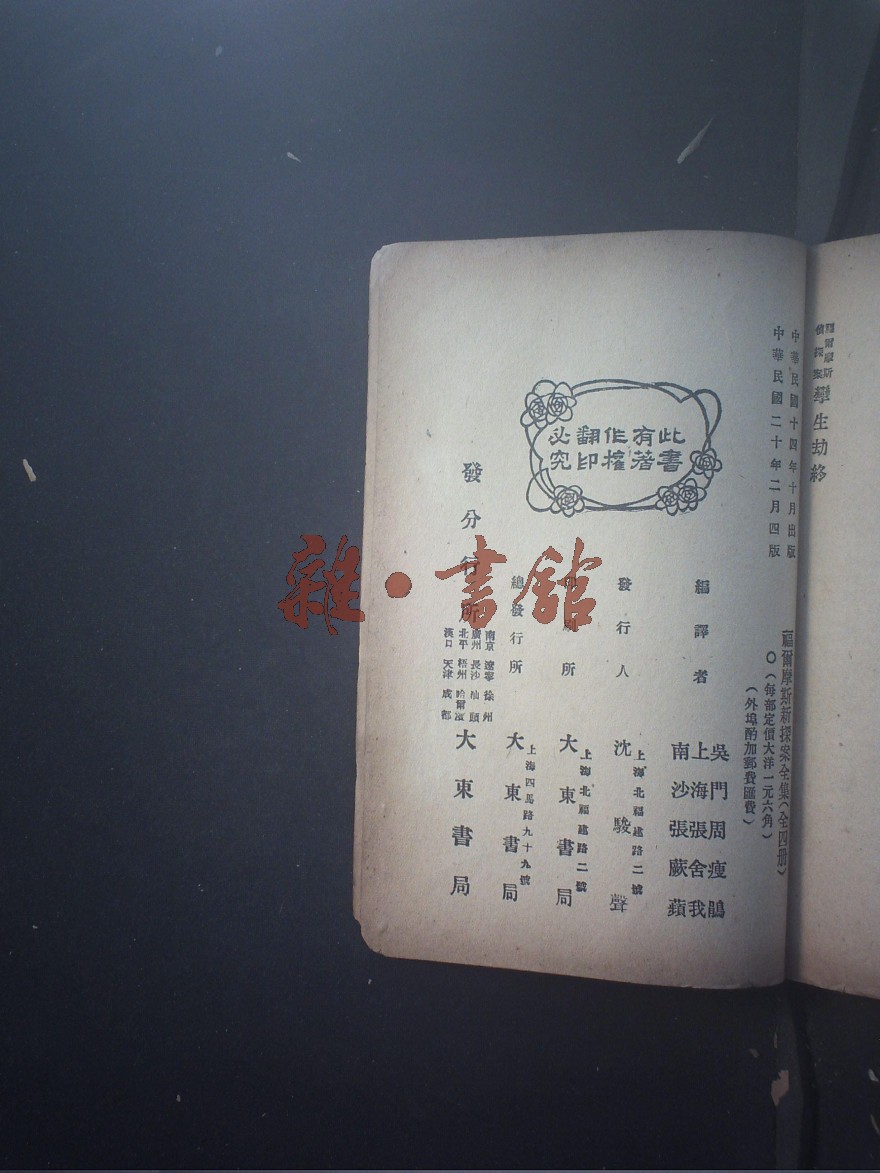 福爾摩斯
偵探案
孿生劫終
中華民國十四年十月出版
中華民國二十年二月四版
福爾摩斯新探案全集(全四册)
〇(每部定價大洋一元六角)
(外埠酌加郵費匯費)
此書
有著
作權
翻印
必究
編譯者
吳門周瘦鵑
上海張舍我
南沙張蕨蘋
發行人
上海北福建路二號
沈駿聲
印刷所
上海北福建路二號
大東書局
總發行所
上海四馬路九十九號
大東書局
發分行所
南京 遼寧 徐州
廣州 長沙 汕頭
北平 梧州 哈爾濱
漢口 天津 成都
大東書局
雜·書館